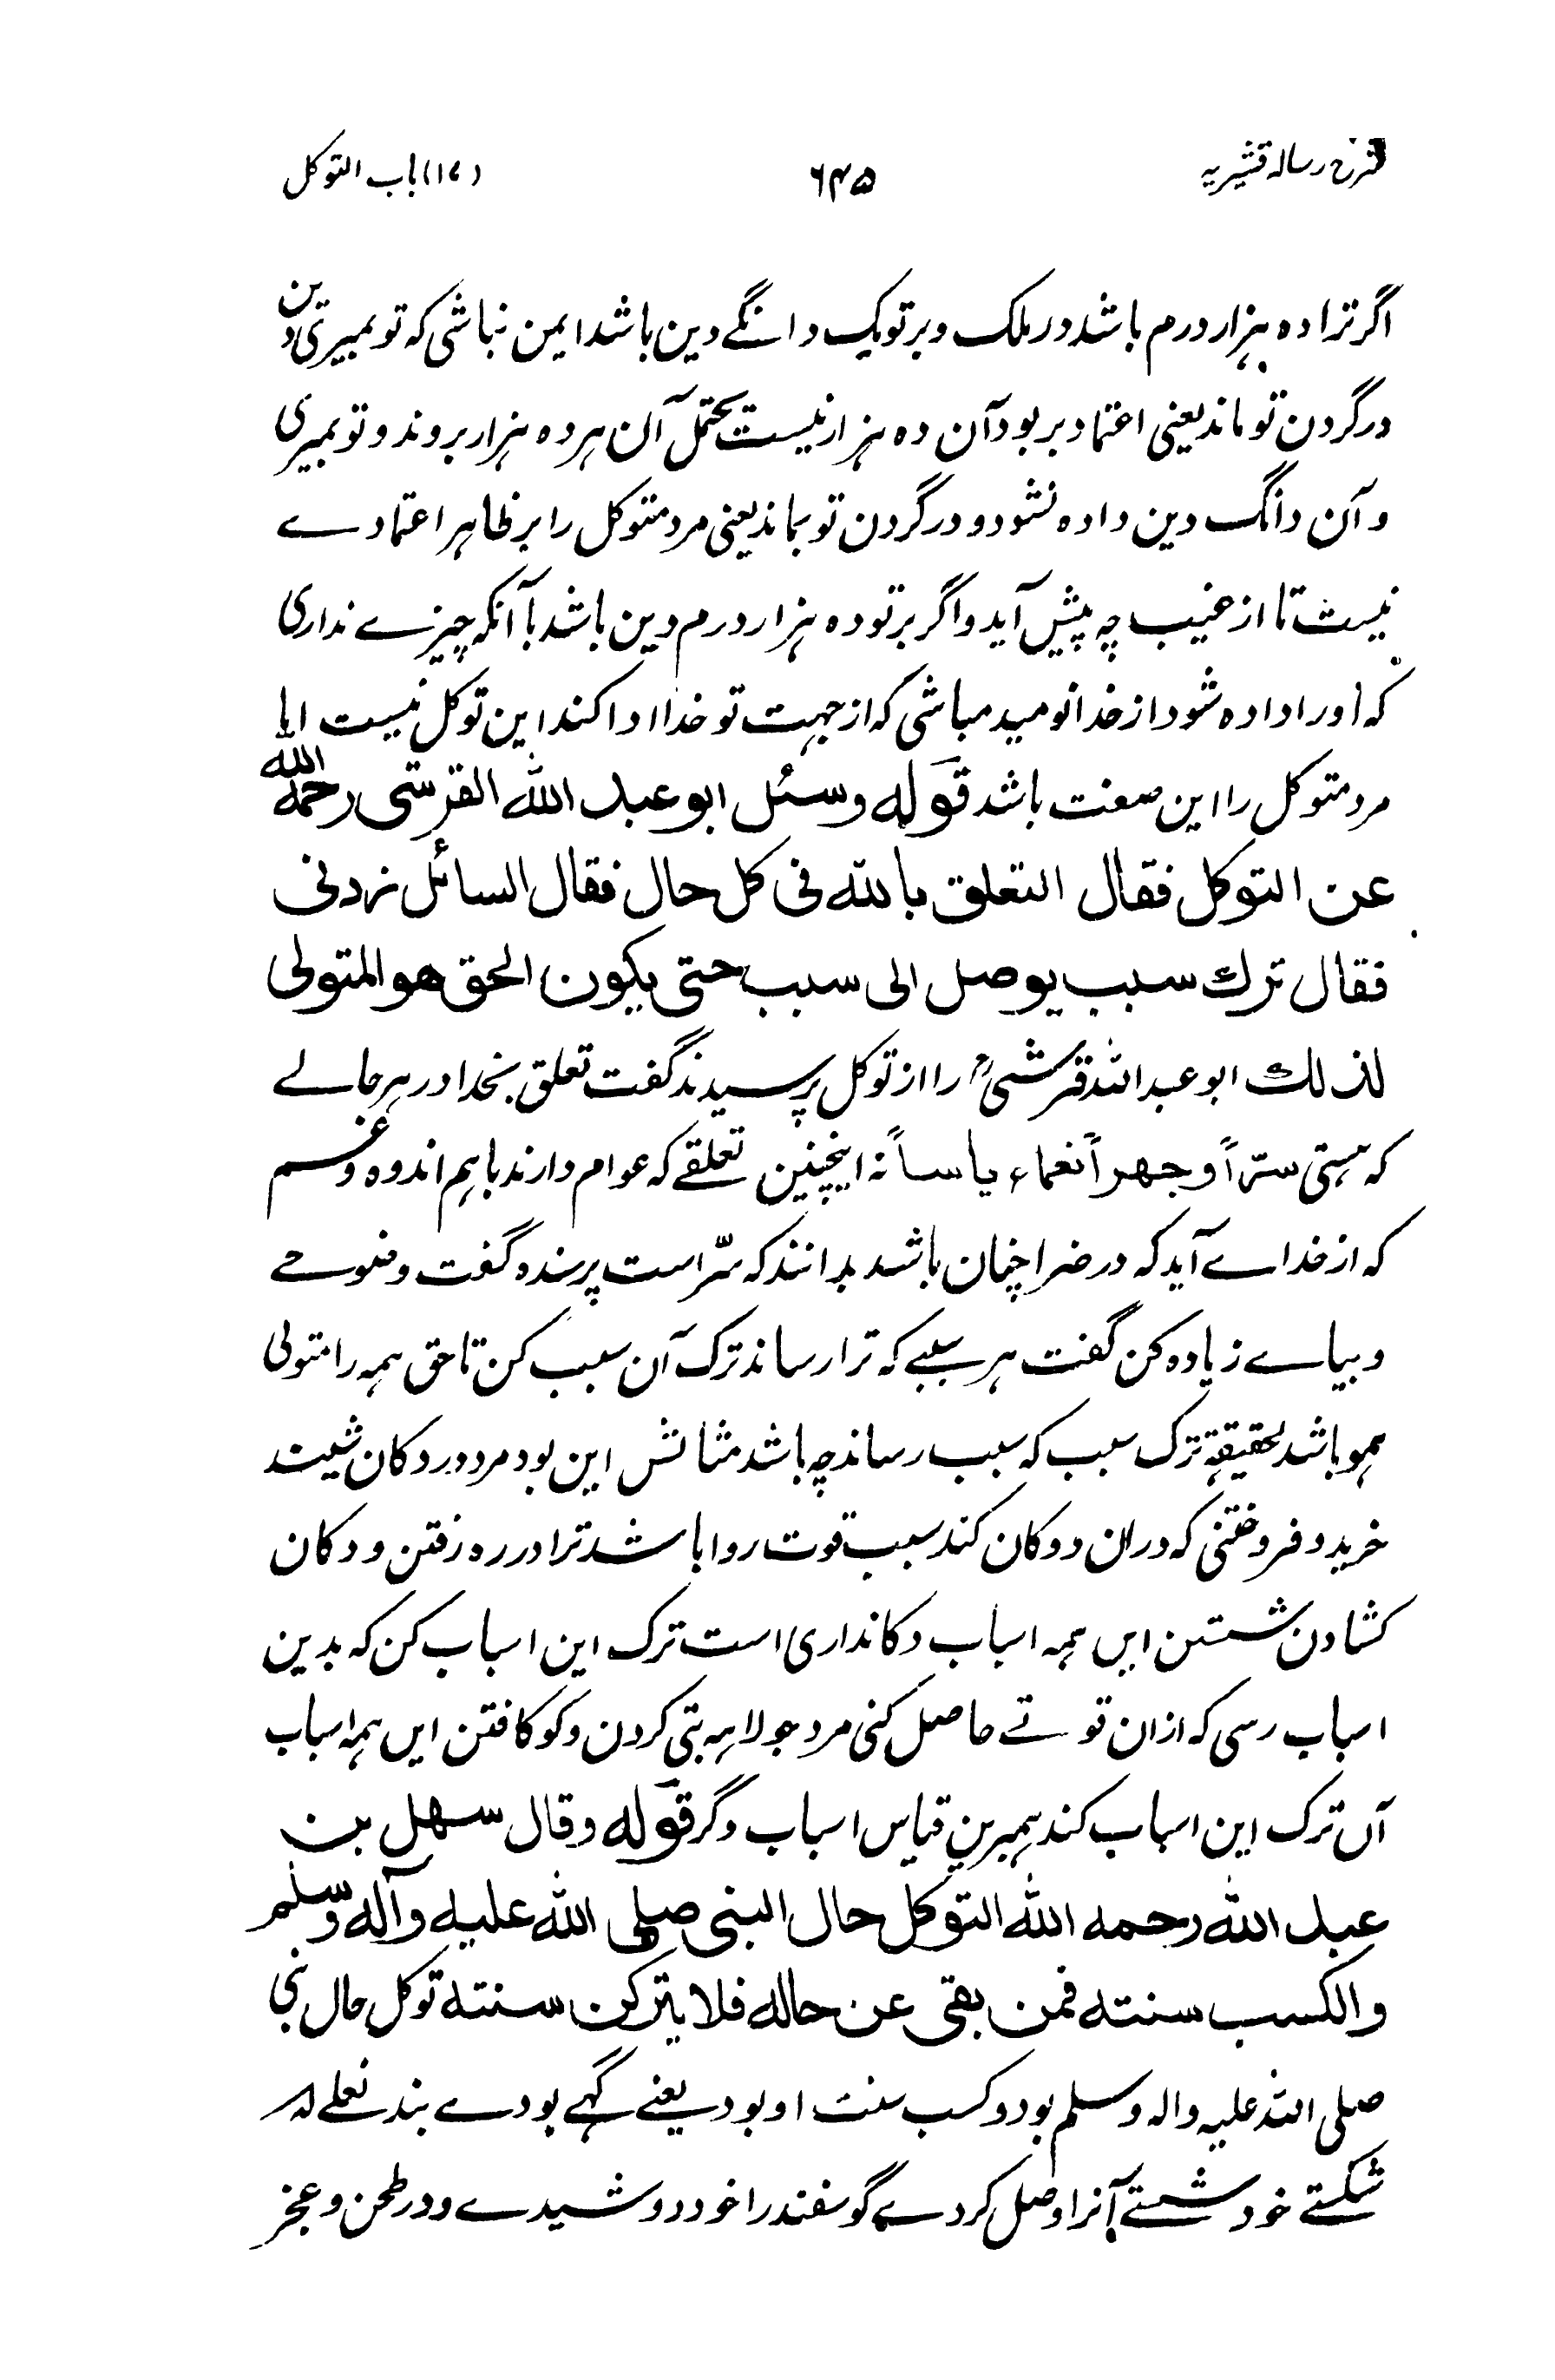 شرح رسالہ قشیریہ ۶۴۵ (۱۷) باب التوکل
اگر ترا ده ہزار درم باشد در ملک و بر تو یک دانگے دین باشد ایمن نباشی کہ تو بمیری دین
در گردن تو ماند یعنی اعتماد بر بود آن ده ہزار نیست یحتمل آن ہر ده ہزار بروند و تو بمیری
و آن دانگ دین داده نشود و در گردن تو بماند یعنی مرد متوکل را بر ظاہر اعتمادے
نیست تا از غیب چہ پیش آید و اگر بر تو ده ہزار درم دین باشد با آنکہ چیزے نداری
کہ اورا داده شود از خدا نومید مباشی کہ از جہت تو خدا ادا کند این توکل نیست اما
مرد متوکل را این صفت باشد قوله وسئل ابو عبد الله القرشی رحمه الله
عن التوكل فقال التعلق بالله فی كل حال فقال السائل زدنی
فقال ترك سبب یوصل الی سبب حتی یكون الحق هو المتولی
لذلك ابو عبد اللہ قرشیؒ را از توکل پرسیدند گفت تعلق بخدا در ہر حالے
کہ ہستی سرّاً و جهراً نعماء یا ساًنہ اینچنین تعلقے کہ عوام دارند باہم اندوه و غم
کہ از خداے آید کہ در ضرا چنان باشد بدانند کہ سرّ است پرسنده گفت وضوحے
و بیاے زیاده کن گفت ہر سببے کہ ترا رساند ترک آن سبب کن تا حق ہمہ را متولی
ہمو باشد لحقیقة ترک سبب کہ بسبب رساند چہ باشد مثالش این بود مرد در دکان شیند
خرید و فروختنی کہ دران دوکان کند سبب قوت روا باشد ترا در ره رفتن و دکان
کشادن شستن ایں ہمہ اسباب دکانداری است ترک این اسباب کن کہ بدین
اسباب رسی کہ ازان قوتے حاصل کنی مرد جولاہہ بتی کردن و کوکا فتن ایں ہمہ اسباب
آں ترک این اسباب کند ہمبرین قیاس اسباب دگر قوله وقال سهل بن
عبد الله رحمه الله التوكل حال النبی صلی الله علیه وآله وسلم
والكسب سنته فمن بقی عن حاله فلا یتركن سنته توکل حال نبی
صلی اللہ علیہ والہ وسلم بود و کسب سنت او بود یعنے گہے بودے بند نعلے کہ
شکستے خود شستے آنرا وصل کردے گوسفند را خود دوشیدے و در طحن و عجز